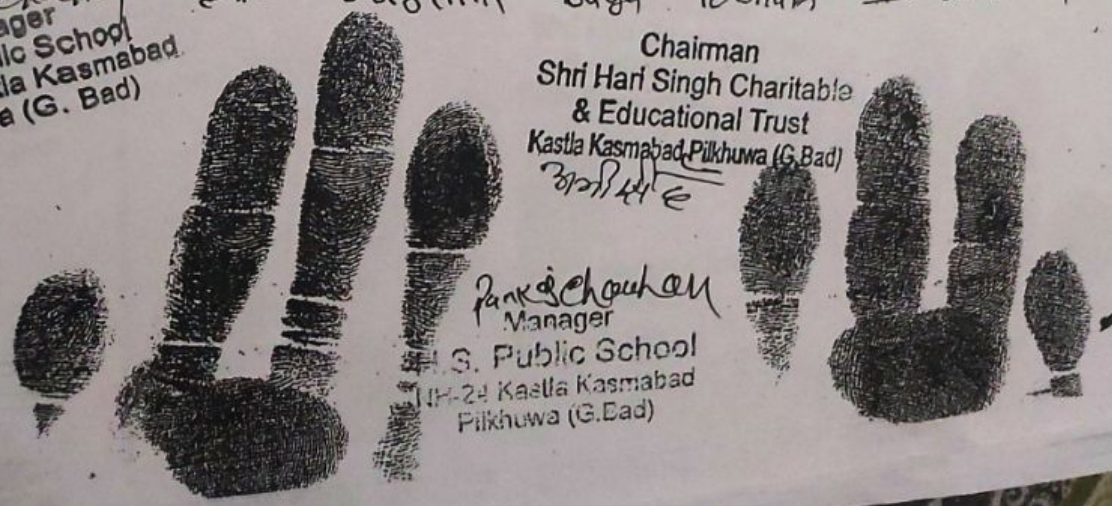 ager
lic School
la Kasmabad
a (G. Bad)
Chairman
Shri Hari Singh Charitable
& Educational Trust
Kastla Kasmabad Pilkhuwa (G.Bad)
Pankaj Chauhan
Manager
H.S. Public School
NH-24 Kastla Kasmabad
Pilkhuwa (G.Bad)